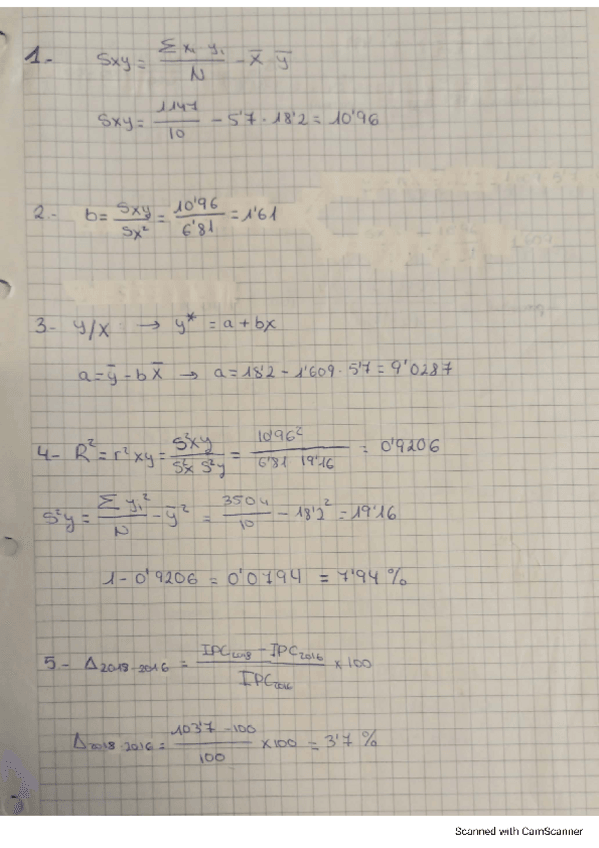 1.- Sxy = Σ x₁ y₁ / N - x̄ ȳ
Sxy = 1147 / 10 - 5'7 · 18'2 = 10'96
2.- b = Sxy / Sx² = 10'96 / 6'81 = 1'61
3- y/x → y* = a + bx
a = ȳ - b x̄ → a = 18'2 - 1'609 · 5'7 = 9'0287
4- R² = r² xy = S²xy / S²x S²y = 10'96² / 6'81 19'16 = 0'9206
S²y = Σ y₁² / N - ȳ² = 3504 / 10 - 18'2² = 19'16
1 - 0'9206 = 0'0794 = 7'94 %
5- Δ2018-2016 = IPC2018 - IPC2016 / IPC2016 x 100
Δ2018-2016 = 103'7 - 100 / 100 x 100 = 3'7 %
Scanned with CamScanner